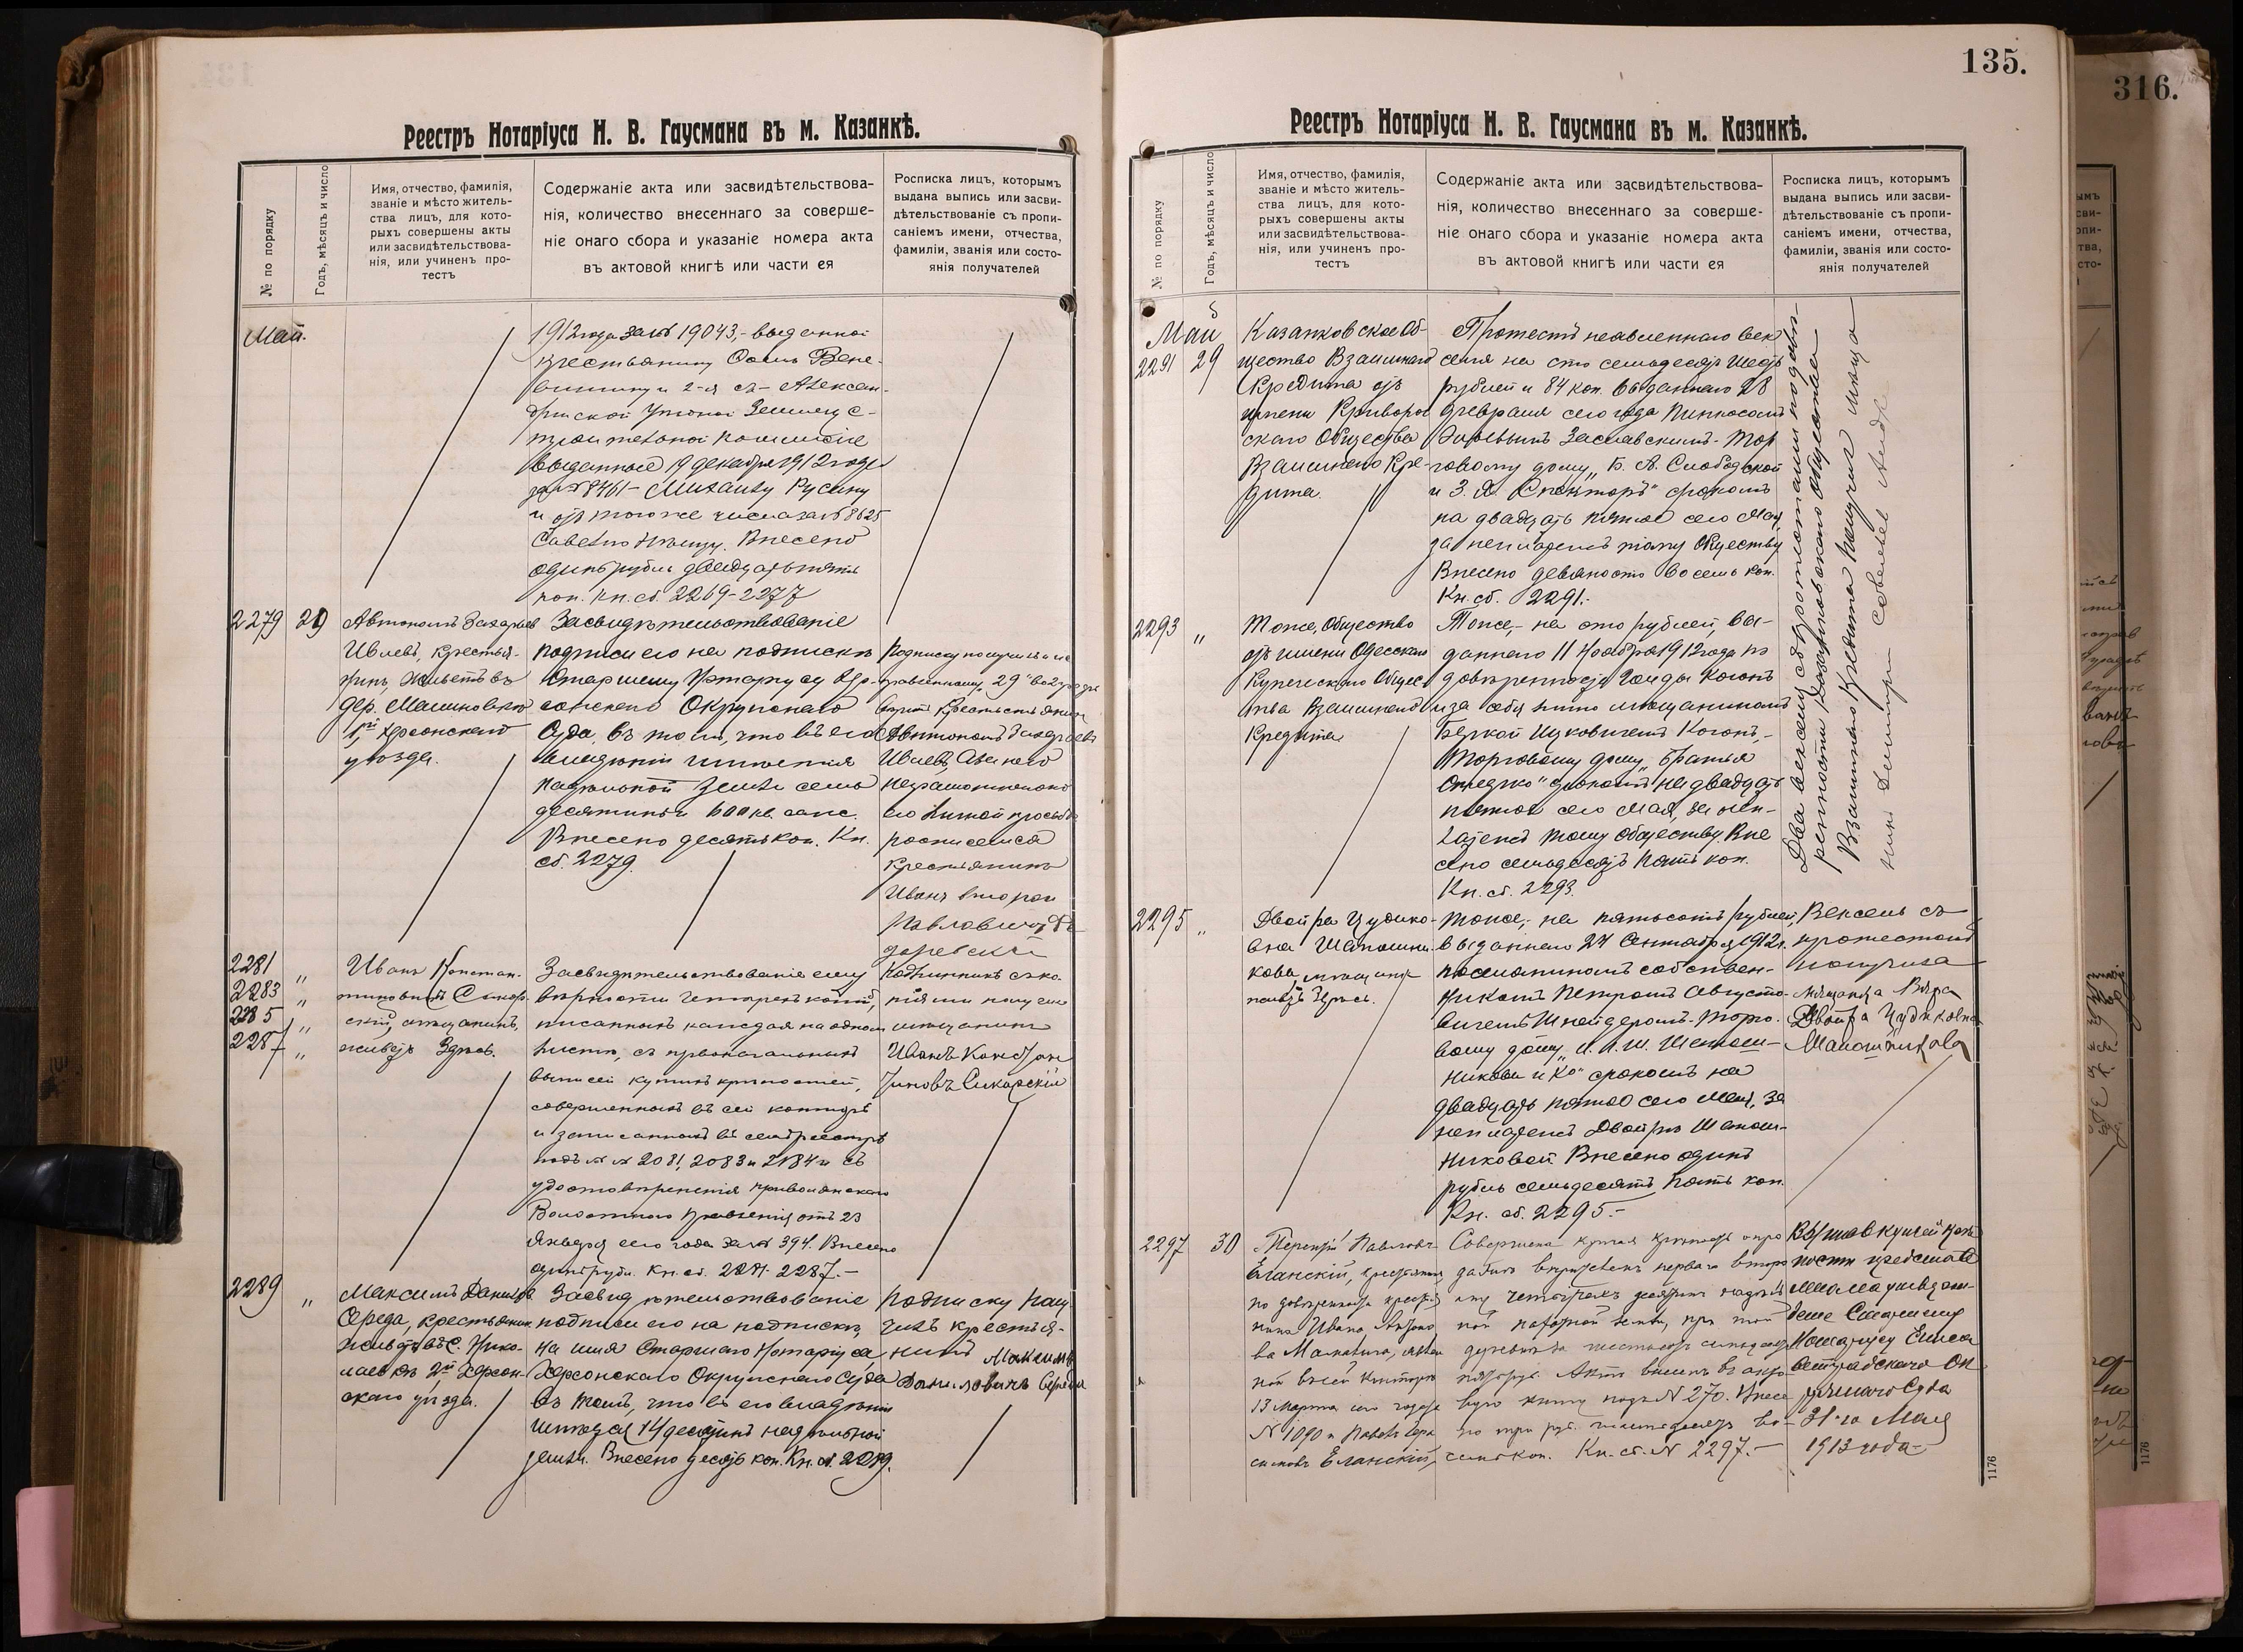 Реестръ Нотаріуса Н. В. Гаусмана въ м. Казанкѣ.
№ по порядку
Годъ, мѣсяцъ и число
Имя, отчество, фамилія,
званіе и мѣсто житель-
ства лицъ, для кото-
рыхъ совершены акты
или засвидѣтельствова-
нія, или учиненъ про-
тестъ
Содержаніе акта или засвидѣтельствова-
нія, количество внесеннаго за соверше-
ніе онаго сбора и указаніе номера акта
въ актовой книгѣ или части ея
Росписка лицъ, которымъ
выдана выпись или засви-
дѣтельствованіе съ пропи-
саніемъ имени, отчества,
фамиліи, званія или состо-
янія получателей
Май.
1912 года за № 19043, - выданной
крестьянину
и 2-я съ - Алексан-
дрійской Уѣздной Землеус-
троительной Коммисіи
выданные 19 декабря 1912 года
за № 8461 - Михаилу Русину
и отъ того же числа за № 8625
Внесено
одинъ рубль двадцать пять
коп. Кн. сб. 2269-2277
2279 29
Автономъ Захарьев
Ивлевъ, крестья-
нинъ, живетъ въ
дер. Малиновкѣ
1го Херсонскаго
уѣзда.
Засвидѣтельствованіе
подписи его на подпискѣ
Старшему Нотаріусу Хер-
сонскаго Окружнаго
Суда, въ томъ, что въ его
владѣніи имѣется
надѣльной земли семь
десятинъ 600 кв. саж.
Внесено десять коп. Кн.
сб. 2279.
Подписку получилъ и не
29
крестьянин
Автономъ Захарьевъ
Ивлевъ, а за него
неграмотнаго
его личной просьбѣ
росписался
крестьянинъ
Иванъ
Павловичъ
2281 "
2283 "
2285 "
2287 "
Иванъ Констан-
тиновичъ Сикор-
скій, мѣщанинъ,
живетъ здѣсь.
Засвидѣтельствованіе ему
вѣрности четырехъ копій,
писанныхъ каждая на одномъ
листѣ, съ первоначальныхъ
выписей купчихъ крѣпостей,
совершенныхъ въ сей конторѣ
и записанныхъ въ семъ реестрѣ
подъ №№ 2081, 2083 и 2184 и съ
удостовѣренія
Волостного Правленія отъ 23
Января сего года за № 394. Внесено
одинъ рубль. Кн. сб. 2281-2287.-
Подлинники съ ко-
піями получилъ
мѣщанинъ
Иванъ Констан
тиновъ Сикорскій
2289 "
Максимъ Данилов
Середа, крестьянин
живетъ въ с. Нико-
лаевкѣ 2го Херсон-
скаго уѣзда.
Засвидѣтельствованіе
подписи его на подпискѣ,
на имя Старшаго Нотаріуса,
Херсонскаго Окружнаго Суда
въ томъ, что въ его владѣніи
имѣется 14 десятинъ надѣльной
земли. Внесено десять коп. Кн. сб. 2289.
Подписку полу
чилъ крестья-
нинъ Максимъ
Даниловичъ Середа
135.
Реестръ Нотаріуса Н. В. Гаусмана въ м. Казанкѣ.
№ по порядку
Годъ, мѣсяцъ и число
Имя, отчество, фамилія,
званіе и мѣсто житель-
ства лицъ, для кото-
рыхъ совершены акты
или засвидѣтельствова-
нія, или учиненъ про-
тестъ
Содержаніе акта или засвидѣтельствова-
нія, количество внесеннаго за соверше-
ніе онаго сбора и указаніе номера акта
въ актовой книгѣ или части ея
Росписка лицъ, которымъ
выдана выпись или засви-
дѣтельствованіе съ пропи-
саніемъ имени, отчества,
фамиліи, званія или состо-
янія получателей
Май
2291 29
Казанковское Об-
щество Взаимнаго
Кредита отъ
имени Криворож
скаго Общества
Взаимнаго Кре-
дита.
Протестъ неявленнаго век
селя на сто семьдесятъ шесть
рублей и 84 коп. выданнаго 28
февраля сего года Пинхасомъ
Заславскимъ - Тор
говому дому „Б. А. Слободской
и З. Я. Спекторъ" срокомъ
на двадцать пятое сего Мая,
за неплатежъ тому Обществу
Внесено девяносто восемь коп.
Кн. сб. 2291.-
2293 "
Тоже, Общество
отъ имени Одесскаго
Купеческаго Общес
тва Взаимнаго
Кредита
Тоже, - на сто рублей, вы-
даннаго 11 Ноября 1912 года по
довѣренности Когонъ
и за себя лично мѣщаниномъ
Беркой Ицковичемъ Когонъ, -
Торговому дому „Братья
" срокомъ на двадцать
пятое сего Мая, за неп-
латежъ тому Обществу. Вне
сено семьдесятъ пять коп.
Кн. сб. 2293.
Два векселя съ протестами по довѣ-
ренности Казанковскаго Общества
Взаимнаго Кредита получилъ мѣща-
нинъ Дмитрій
2295 "
Двойра Цудико-
вна Шапошни-
кова, мѣщанка
живетъ здѣсь.
Тоже, - на пятьсотъ рублей,
выданнаго 24 Сентября 1912 г.
поселяниномъ собствен-
никомъ Петромъ Августо-
вичемъ Шнейдеромъ - Торго-
вому дому „И. А. Ш. Шапош-
никовы и Ко" срокомъ на
двадцать пятое сего Мая, за
неплатежъ Двойрѣ Шапош-
никовой Внесено одинъ
рубль семьдесятъ пять коп.
Кн. сб. 2295.-
Вексель съ
протестомъ
получила
мѣщанка Вѣра
Двойра Цудиковна
Шапошникова
2297 30
Терентій Павловъ
Еланскій, крестьянинъ
по довѣренности крестья
нина Ивана
ва
ной въ сей конторѣ
13 Марта сего года за
№ 1090 и Павелъ
Еланскій,
Совершена купчая крѣпость о про
дажѣ первымъ второ
му четырехъ десятинъ надѣль
ной земли, при той
деревнѣ за шестьсотъ семьдесят
пять руб. Актъ внесенъ въ акто-
вую книгу подъ № 270. Внесе
но три руб. шестьдесятъ во-
семь коп. Кн. сб. № 2297.-
Выпись купчей крѣ
пости представ
лена для утвержде-
денія Старшему
Нотаріусу Елиса
ветградскаго Ок
ружнаго Суда
31-го Мая
1913 года-
1176
316.
1176